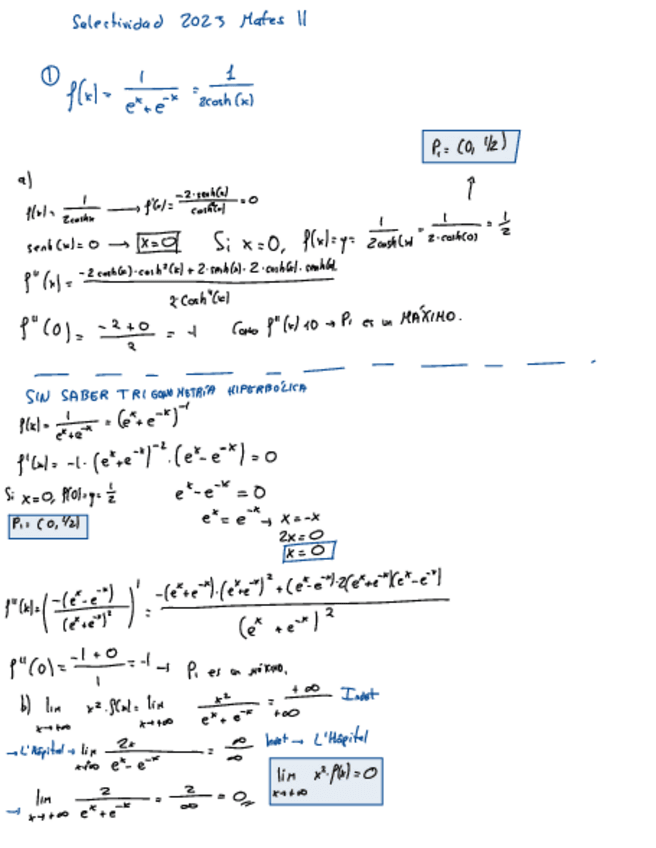 Selectividad 2023 Mates II
① f(x) = 1/(e^x + e^-x) = 1/(2cosh(x))
P₁ = (0, 1/2)
a)
f(x) = 1/(2cosh x) → f'(x) = (-2·senh(x))/(cosh²(x)) = 0
senh(x) = 0 → x=0 Si x=0, f(x)=y= 1/(2cosh(x)) = 1/(2·cosh(0)) = 1/2
f''(x) = (-2cosh(x)·cosh²(x) + 2·senh(x)·2·cosh(x)·senh(x))/(2cosh⁴(x))
f''(0) = (-2+0)/2 = -1 Como f''(x)<0 → P₁ es un MÁXIMO.
SIN SABER TRIGONOMETRÍA HIPERBÓLICA
f(x) = 1/(e^x+e^-x) = (e^x+e^-x)^-1
f'(x) = -1·(e^x+e^-x)^-2·(e^x-e^-x) = 0
Si x=0, f(0)=y= 1/2 e^x - e^-x = 0
P₁ = (0, 1/2) e^x = e^-x → x=-x
2x=0
x=0
f''(x) = ((-(e^x-e^-x))/((e^x+e^-x)²))' = (-(e^x+e^-x)·(e^x+e^-x)² + (e^x-e^-x)·2(e^x+e^-x)(e^x-e^-x))/((e^x+e^-x)²)
f''(0) = (-1+0)/1 = -1 → P₁ es un MÁXIMO.
b) lim x→+∞ x²·f(x) = lim x→+∞ x²/(e^x+e^-x) = +∞/+∞ Indet
→ L'Hôpital → lim x→+∞ 2x/(e^x-e^-x) = ∞/∞ Indet → L'Hôpital
→ lim x→+∞ 2/(e^x+e^-x) = 2/∞ = 0 lim x→+∞ x²·f(x) = 0